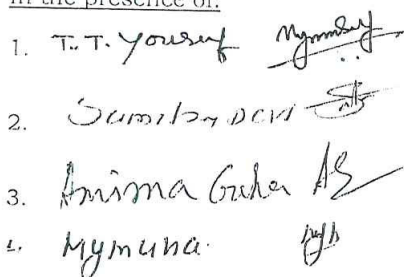 in the presence of:
1. T. T. Yousuf
2. Sumitra Devi
3. Anima Guha AS
4. Mymuna.